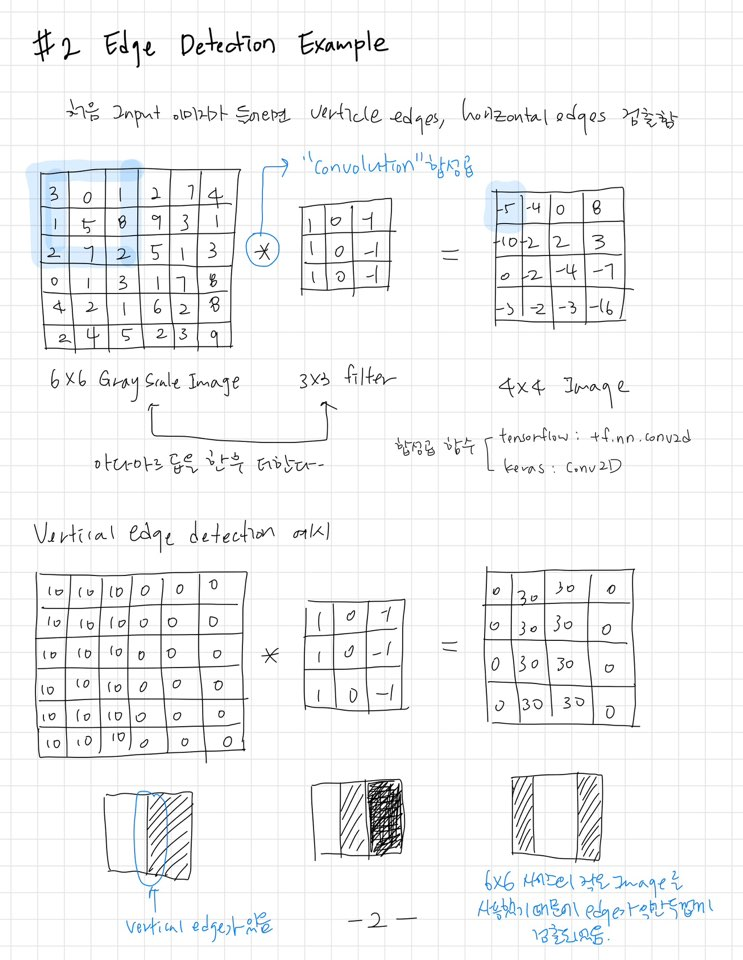 #2 Edge Detection Example
처음 Input 이미지가 들어오면 verticle edges, horizontal edges 검출함
"Convolution" 합성곱
3 0 1 2 7 4
1 5 8 9 3 1
2 7 2 5 1 3
0 1 3 1 7 8
4 2 1 6 2 8
2 4 5 2 3 9
*
1 0 -1
1 0 -1
1 0 -1
=
-5 -4 0 8
-10 -2 2 3
0 -2 -4 -7
-3 -2 -3 -16
6x6 Gray Scale Image
3x3 filter
4x4 Image
합성곱 함수
tensorflow : tf.nn.conv2d
keras : Conv2D
한 더한다-
Vertical edge detection 예시
10 10 10 0 0 0
10 10 10 0 0 0
10 10 10 0 0 0
10 10 10 0 0 0
10 10 10 0 0 0
10 10 10 0 0 0
*
1 0 -1
1 0 -1
1 0 -1
=
0 30 30 0
0 30 30 0
0 30 30 0
0 30 30 0
vertical edge가 있음
6x6 사이즈의 작은 Image를
사용했기 때문에 edge가 약간 두껍게
검출되었음.
-2-